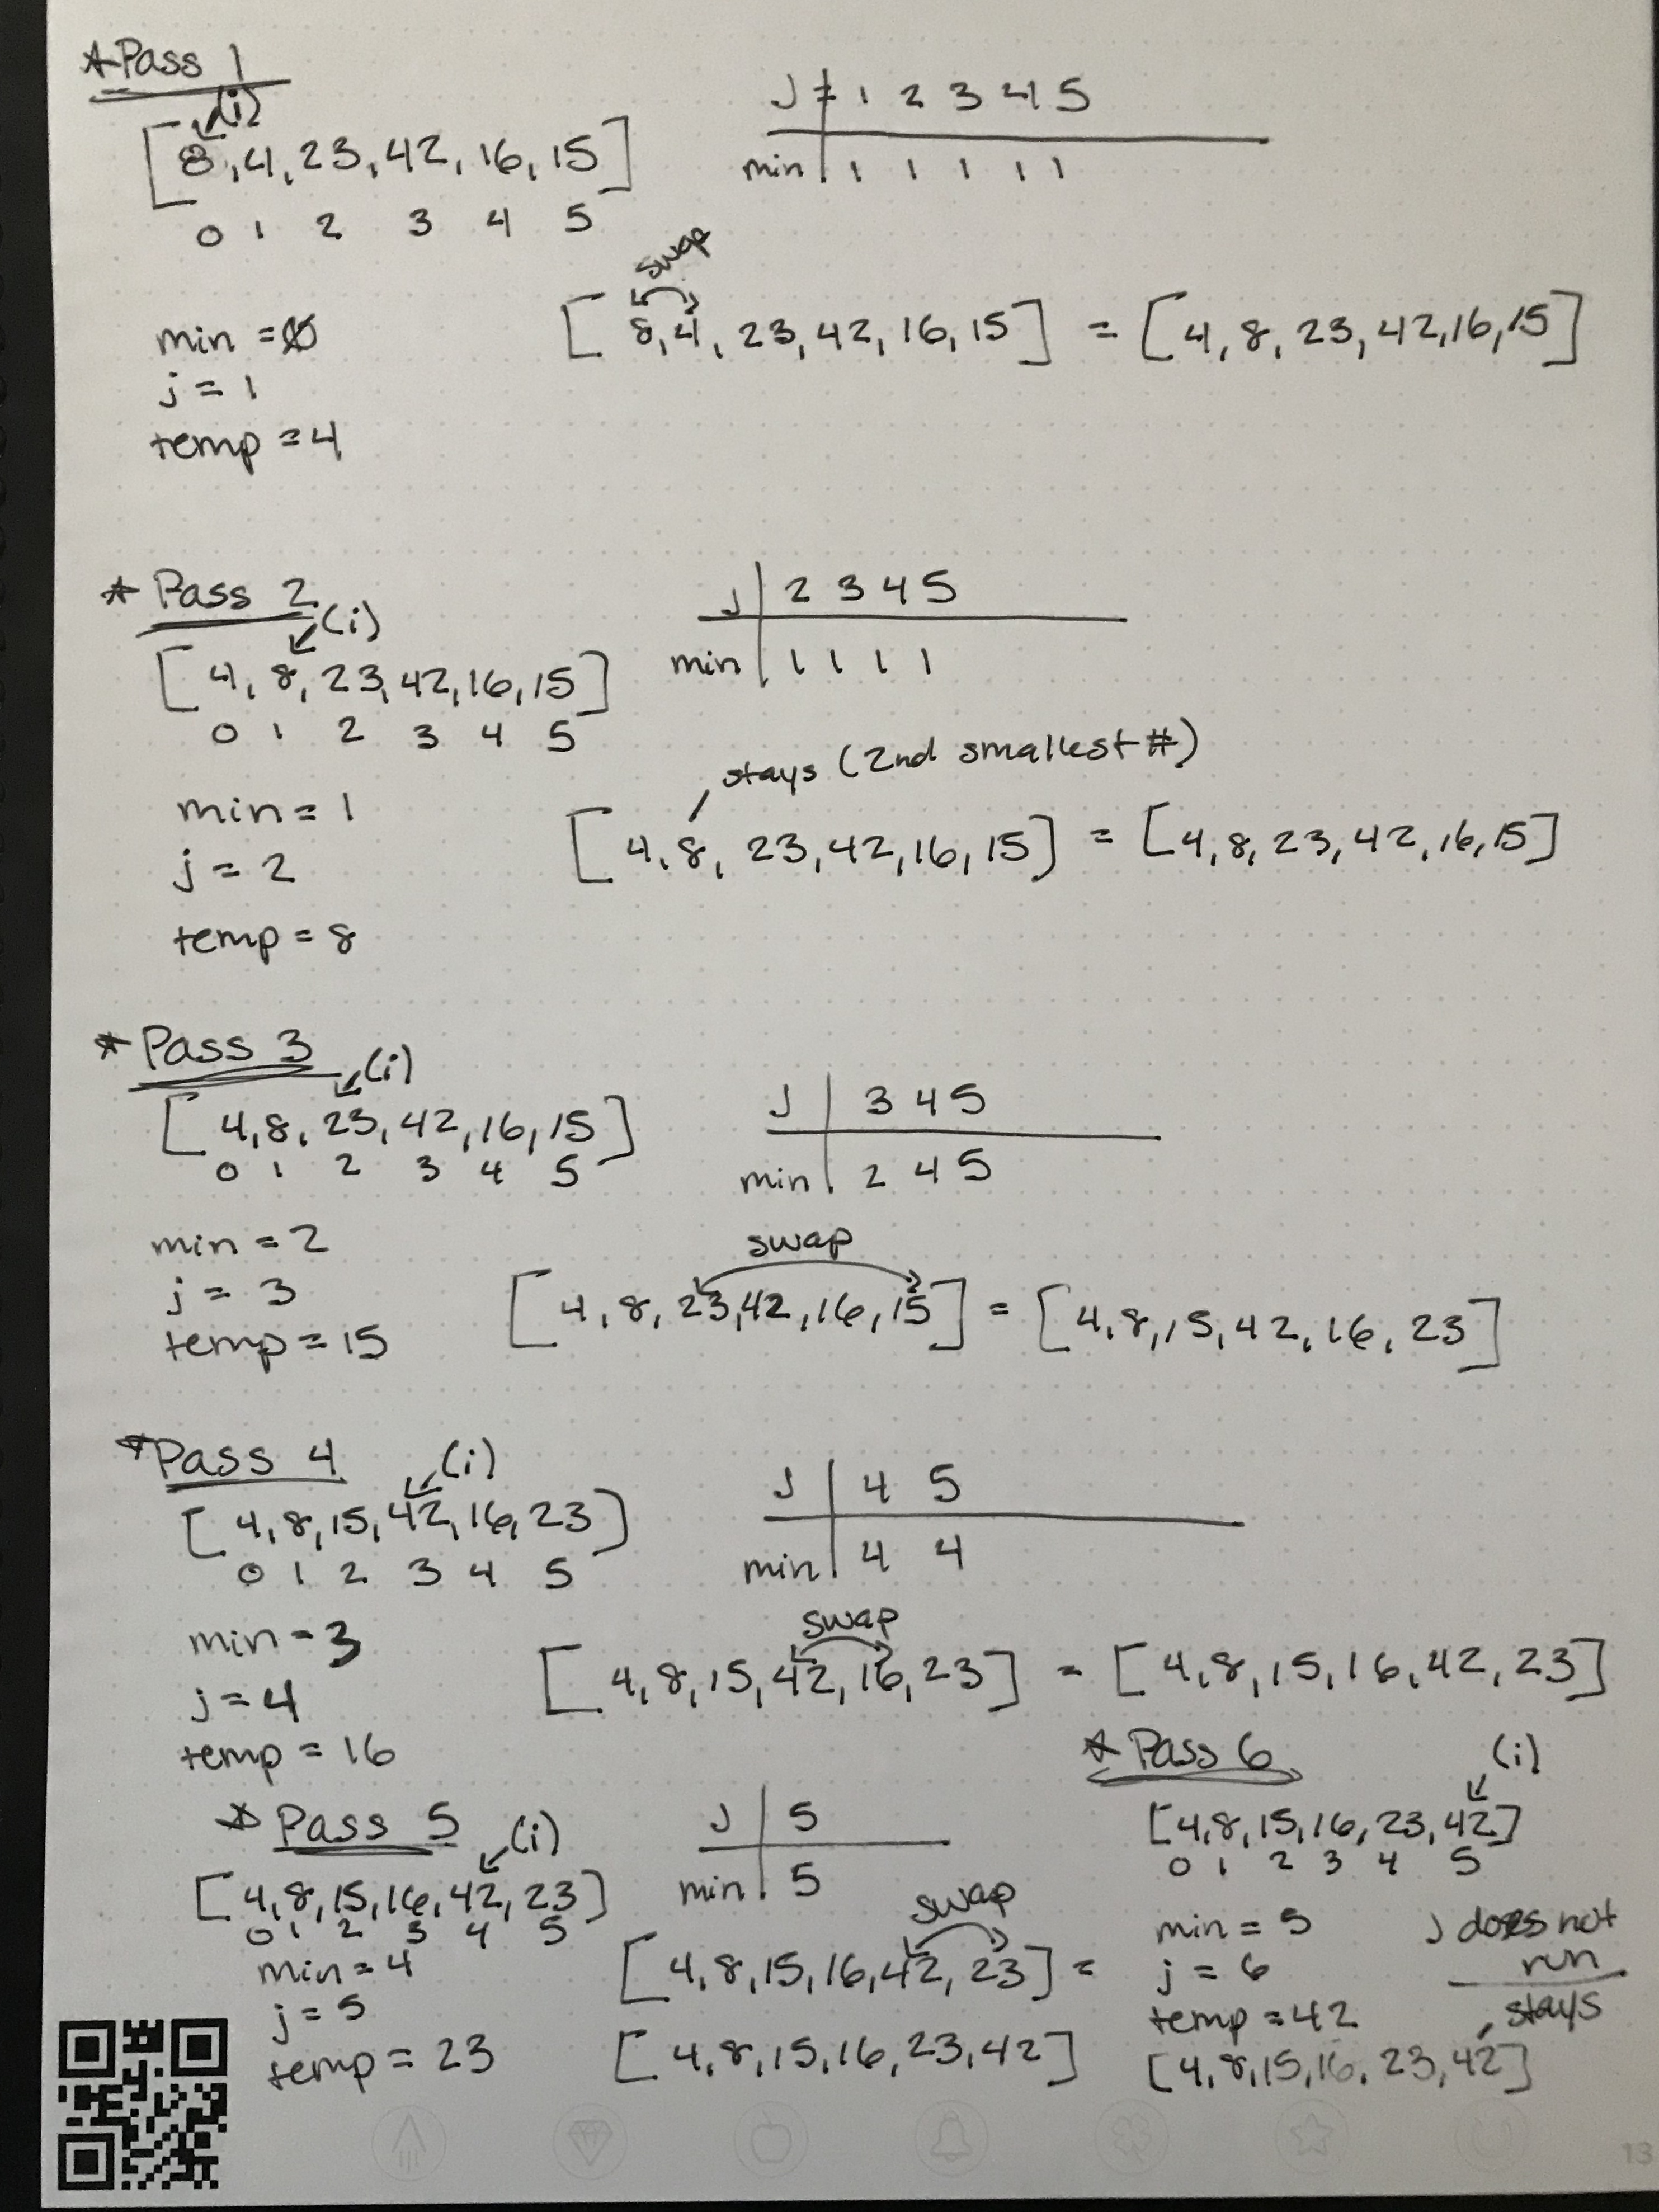 *Pass 1
(i)
[8,4,23,42,16,15]
0 1 2 3 4 5
J = 1 2 3 4 5
min 1 1 1 1 1
min = 0
j = 1
temp = 4
swap
[8,4,23,42,16,15] = [4,8,23,42,16,15]
* Pass 2
(i)
[4,8,23,42,16,15]
0 1 2 3 4 5
J 2 3 4 5
min 1 1 1 1
min = 1
j = 2
temp = 8
stays (2nd smallest #)
[4,8,23,42,16,15] = [4,8,23,42,16,15]
* Pass 3
(i)
[4,8,23,42,16,15]
0 1 2 3 4 5
J 3 4 5
min 2 4 5
min = 2
j = 3
temp = 15
swap
[4,8,23,42,16,15] = [4,8,15,42,16,23]
*Pass 4
(i)
[4,8,15,42,16,23]
0 1 2 3 4 5
J 4 5
min 4 4
min = 3
j = 4
temp = 16
swap
[4,8,15,42,16,23] = [4,8,15,16,42,23]
* Pass 5
(i)
[4,8,15,16,42,23]
0 1 2 3 4 5
J 5
min 5
min = 4
j = 5
temp = 23
swap
[4,8,15,16,42,23] =
[4,8,15,16,23,42]
* Pass 6
(i)
[4,8,15,16,23,42]
0 1 2 3 4 5
min = 5
j = 6
temp = 42
J does not
run
stays
[4,8,15,16,23,42]
13